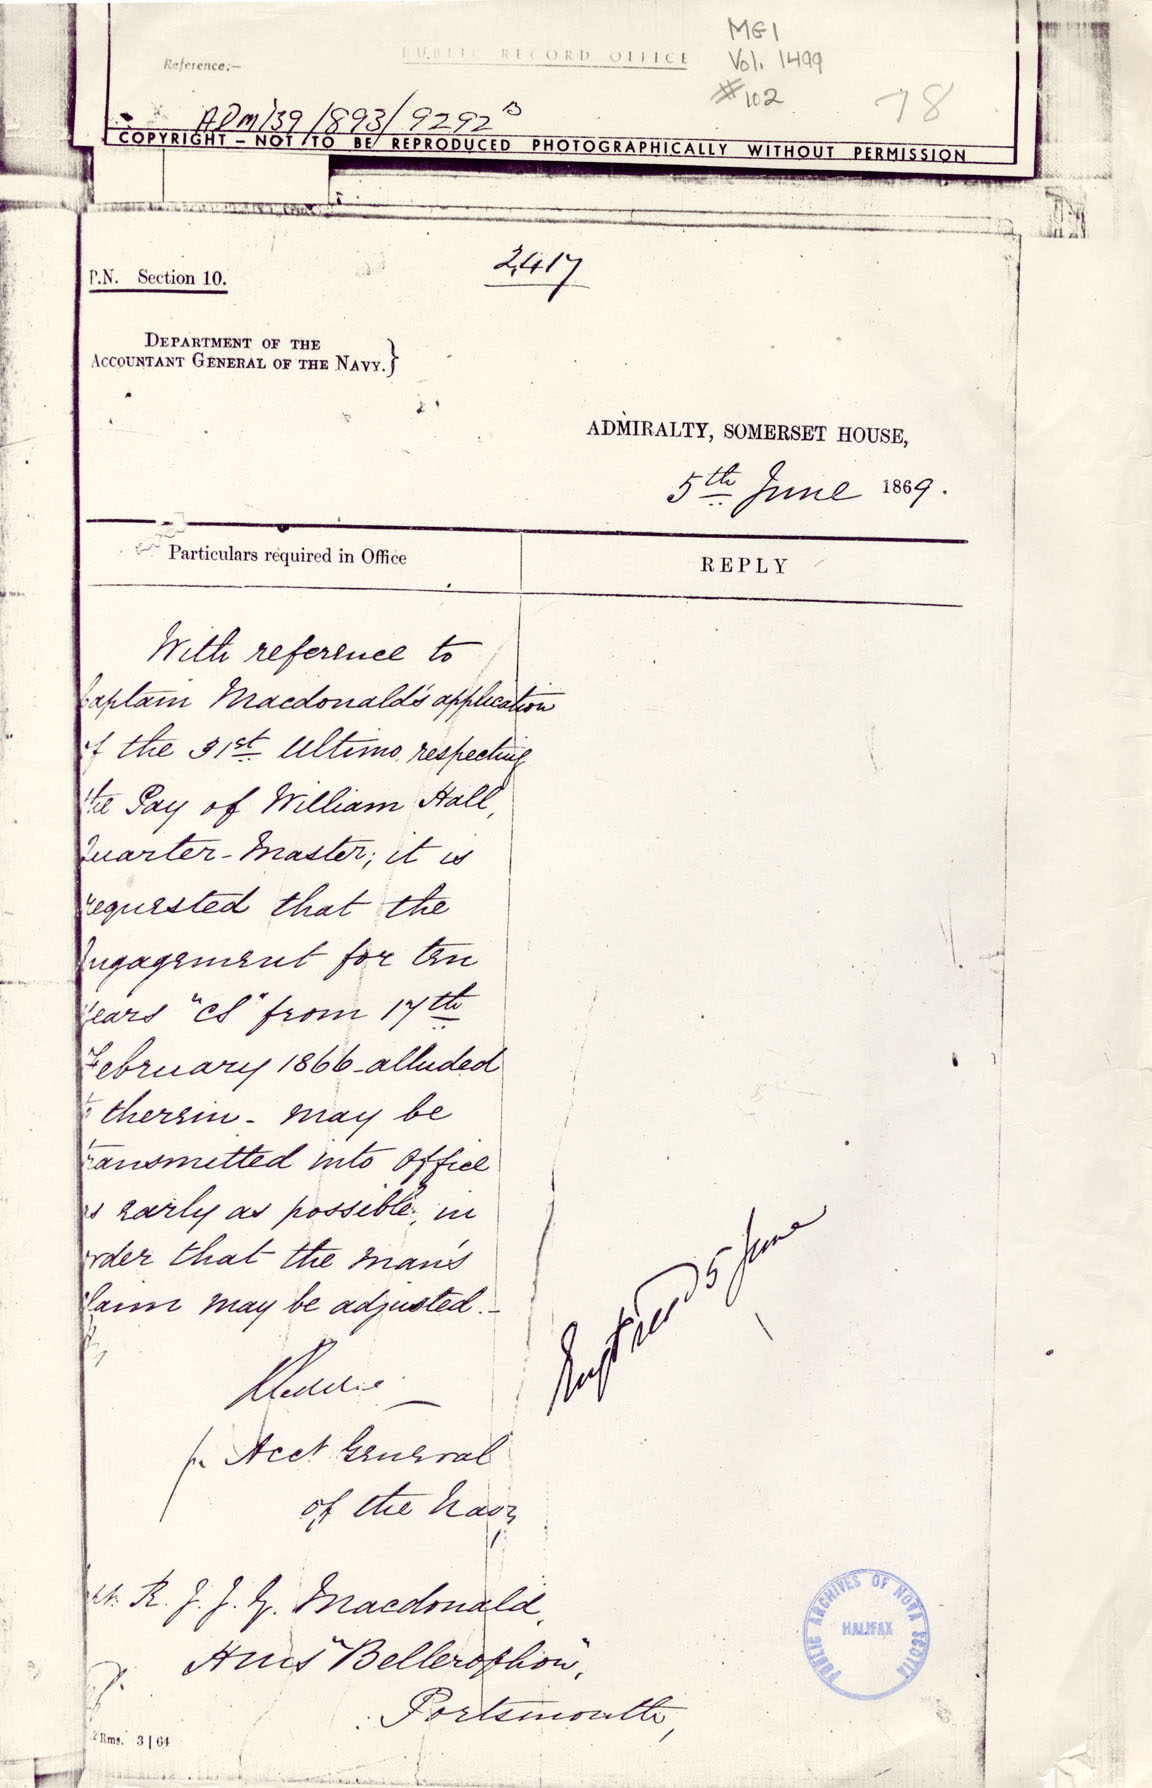 MG1
PUBLIC RECORD OFFICE
Vol. 1499
Reference:-
#102
78
ADM 139/893/9292 B
COPYRIGHT - NOT TO BE REPRODUCED PHOTOGRAPHICALLY WITHOUT PERMISSION
2417
P.N. Section 10.
DEPARTMENT OF THE
ACCOUNTANT GENERAL OF THE NAVY.}
ADMIRALTY, SOMERSET HOUSE,
5th June 1869.
Particulars required in Office
REPLY
With reference to
Captain Macdonald's application
of the 31st Ultimo, respecting
the Pay of William Hall,
Quarter-Master; it is
requested that the
Engagement for ten
years "CS" from 17th
February 1866 - alluded
to therein - may be
transmitted into Office
as early as possible, in
order that the man's
Claim may be adjusted.-
5 June
for Acct General
of the Navy
R. J. J. G. Macdonald,
HMS "Bellerophon",
Portsmouth,
Rms. 3|64
PUBLIC ARCHIVES OF NOVA SCOTIA
HALIFAX